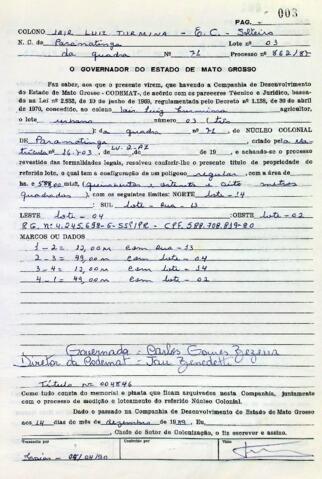 PAG. - 003
COLONO IAIR LUIZ TURMINA - E.C. - Solteiro
N. C. de Paranatinga Lote nº 03
da quadra Nº 71 Processo nº 862/87
O GOVERNADOR DO ESTADO DE MATO GROSSO
Faz saber, aos que o presente virem, que havendo a Companhia de Desenvolvimento
do Estado de Mato Grosso - CODEMAT-, de acordo com os pareceres Técnico e Jurídico, basea-
do na Lei nº 2.838, de 19 de junho de 1968, regulamentada pelo Decreto nº 1.138, de 30 de abril
de 1970, concedido, ao colono Iair Luiz Turmina, agricultor,
o lote urbano número 03 (três
): da quadra nº 71, do NÚCLEO COLONIAL
DE Paranatinga criado pela
nº 16.703 de 19 , e achando-se o processo
revestido das formalidades legais, resolveu conferir-lhe o presente título de propriedade do
referido lote, o qual tem a configuração de um polígono regular, com a área de
ha. 0588,00 mts², (quinhentos e oitenta e oito metros
quadrados), com os seguintes limites: NORTE lote - 14
: SUL lote - Rua - 13
LESTE lote - 04 : OESTE lote - 02
R.G. nº 4.245.698-6-SSP/PR - CPF. 588.708.819-80
MARCOS OU DADOS
1 - 2 = 12,00m com Rua - 13
2 - 3 = 49,00m com lote - 04
3 - 4 = 12,00m com lote - 14
4 - 1 = 49,00m com lote - 02
Governador = Carlos Gomes Bezerra
Diretor da Codemat = Jair Benedetti
Título nº 004846
Como tudo consta do memorial e planta que ficam arquivados nesta Companhia, juntamente
com o processo de medição e loteamento do referido Núcleo Colonial.
Dado e passado na Companhia de Desenvolvimento do Estado de Mato Grosso
aos 14 dias do mês de dezembro de 1989, Eu,
, Chefe do Setor de Colonização, o fiz escrever e assino.
Transcrito por Conferido por Visto
04/90